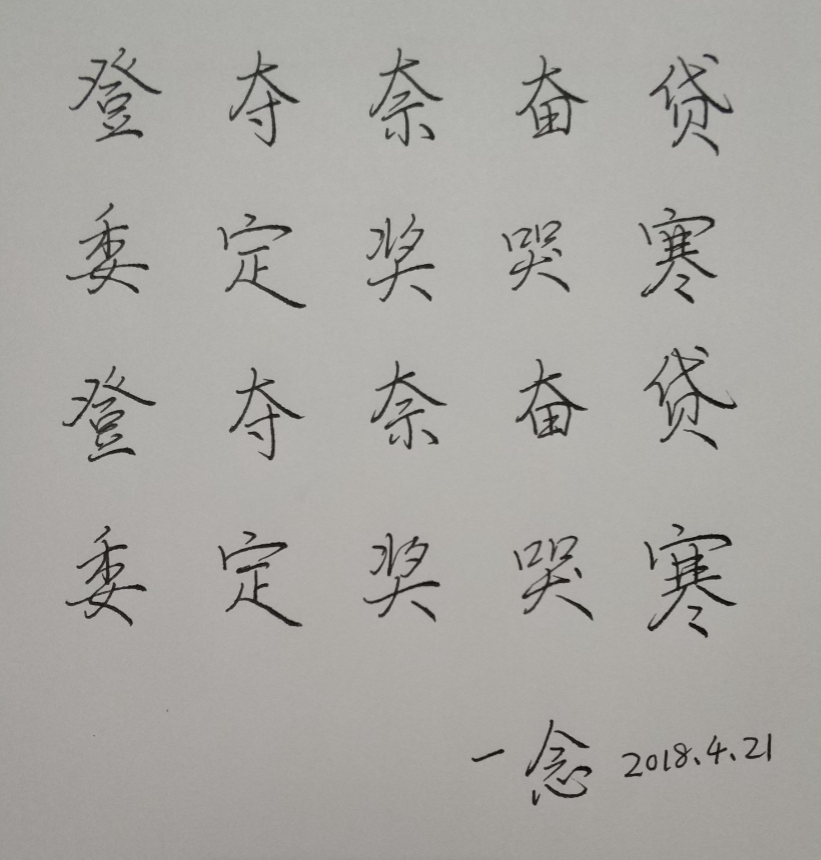 登 夺 奈 奋 贷
委 定 奖 哭 寒
登 夺 奈 奋 贷
委 定 奖 哭 寒
一念 2018.4.21